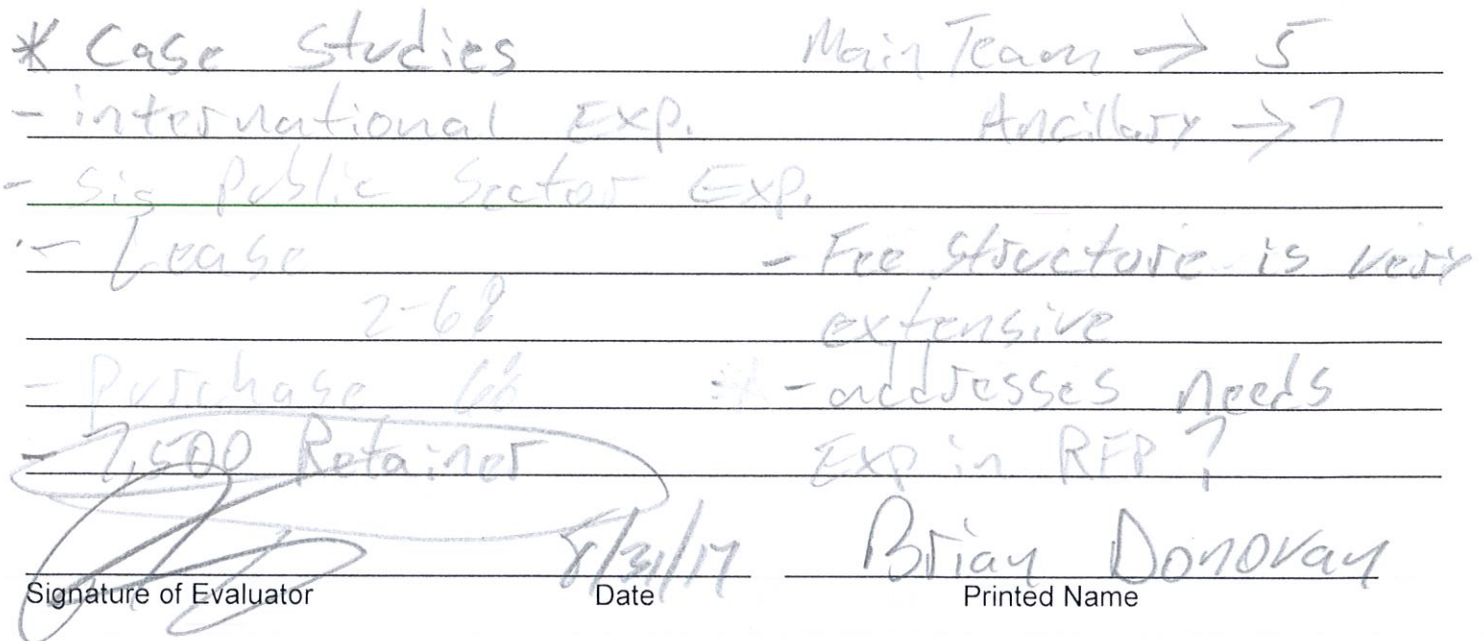 * Case Studies Main Team → 5
- international Exp. Ancillary → 7
- Sig Public Sector Exp.
- Lease - Fee Structure is very
2-6% extensive
- Purchase 6% - addresses needs
- 7,500 Retainer Exp in RFP?
8/31/17 Brian Donovan
Signature of Evaluator Date Printed Name